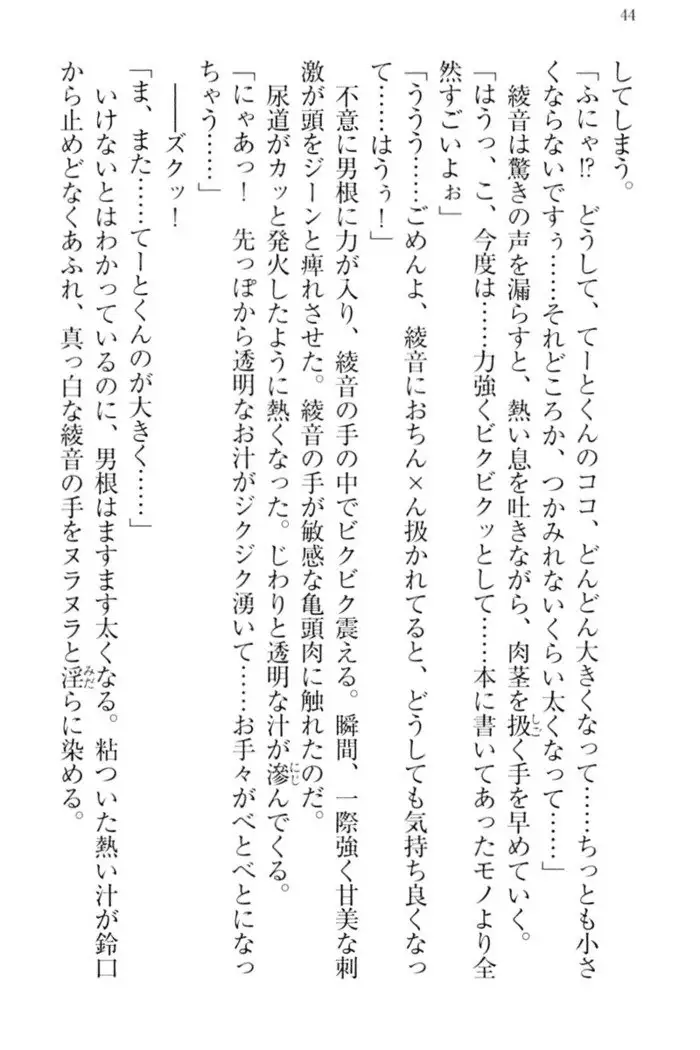 44
してしまう。
「ふにゃ!?　どうして、てーとくんのココ、どんどん大きくなって……ちっとも小さ
くならないですぅ……それどころか、つかみれないくらい太くなって……」
　綾音は驚きの声を漏らすと、熱い息を吐きながら、肉茎を扱く手を早めていく。
「はうっ、こ、今度は……力強くビクビクッとして……本に書いてあったモノより全
然すごいよぉ」
「ううう……ごめんよ、綾音におちん×ん扱かれてると、どうしても気持ち良くなっ
て……はうぅ！」
　不意に男根に力が入り、綾音の手の中でビクビク震える。瞬間、一際強く甘美な刺
激が頭をジーンと痺れさせた。綾音の手が敏感な亀頭肉に触れたのだ。
　尿道がカッと発火したように熱くなった。じわりと透明な汁が滲んでくる。
「にゃあっ！　先っぽから透明なお汁がジクジク湧いて……お手々がべとべとになっ
ちゃう……」
　――ズクッ！
「ま、また……てーとくんのが大きく……」
　いけないとはわかっているのに、男根はますます太くなる。粘ついた熱い汁が鈴口
から止めどなくあふれ、真っ白な綾音の手をヌラヌラと淫らに染める。